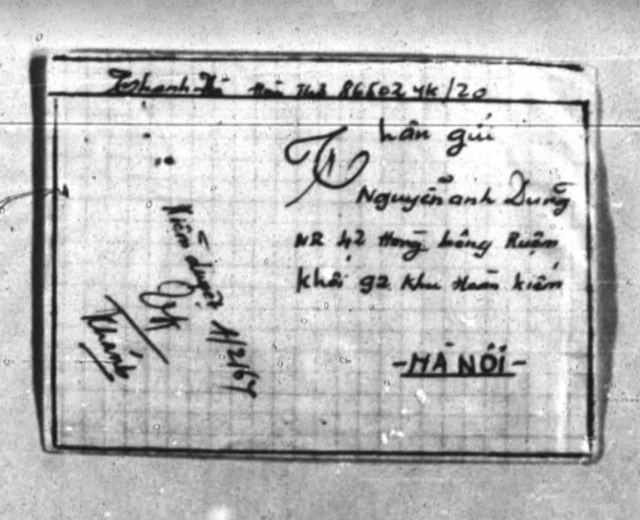 Thanh Hà Hòm Thư 86502 YK/20
Thân gửi
Nguyễn anh Dũng
NR 42 Hàng bông Ruộm
Khối 92 Khu Hoàn kiếm
-HÀ NỘI-
Kiểm duyệt 1/2/67
Khánh